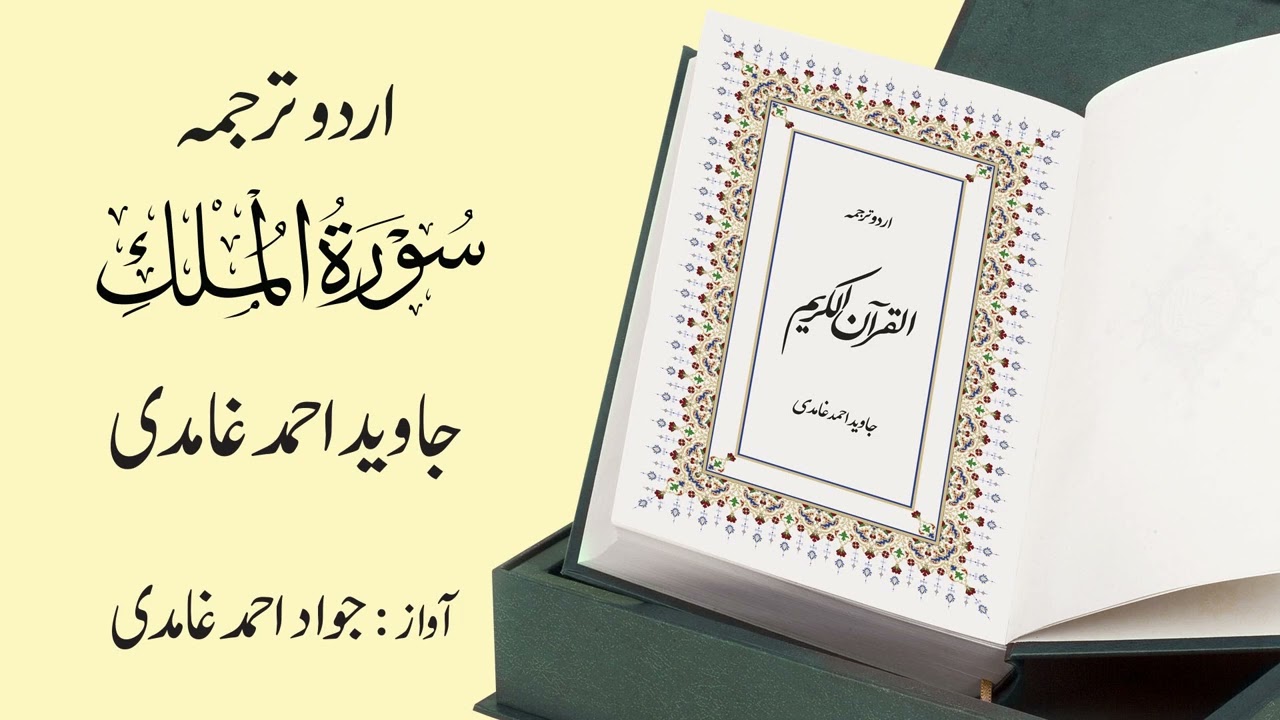 اردو ترجمہ
سُوۡرَةُ الۡمُلۡكِ
جاوید احمد غامدی
آواز : جواد احمد غامدی
اردو ترجمہ
القرآن الکریم
جاوید احمد غامدی